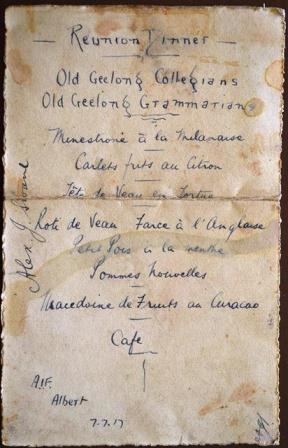 — Reunion Dinner —
Old Geelong Collegians
Old Geelong Grammarians
Minestrone à la Milanaise
Carlets frits au Citron
Tête de Veau en Tortue
Rote de Veau Farce à l'Anglaise
Petit Pois à la menthe
Pommes Nouvelles
Macedoine de Fruits au Curacao
Cafe
Alex J
A.I.F.
Albert
7.7.17